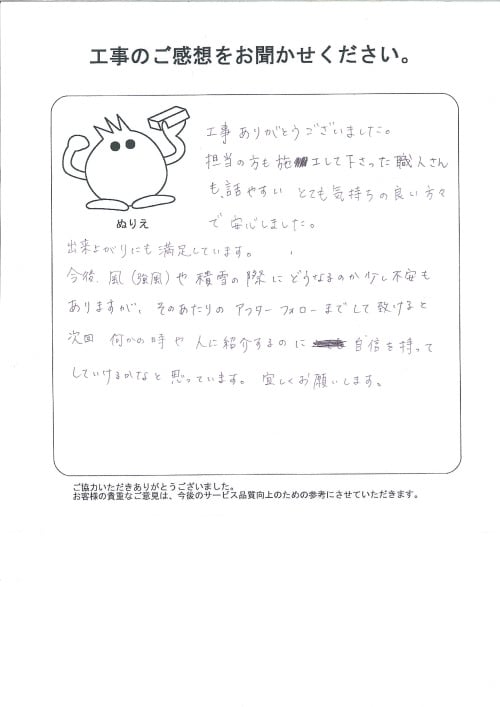 工事のご感想をお聞かせください。
工事ありがとうございました。
担当の方も施工して下さった職人さん
も、話やすい とても気持ちの良い方々
で 安心しました。
ぬりえ
出来上がりにも満足しています。
今後、風（強風）や積雪の際にどうなるのか少し不安も
ありますが、そのあたりの アフターフォローまでして致けると
次回 何かの時や 人に紹介するのに 自信を持って
していけるかなと思っています。 宜しくお願いします。
ご協力いただきありがとうございました。
お客様の貴重なご意見は、今後のサービス品質向上のための参考にさせていただきます。